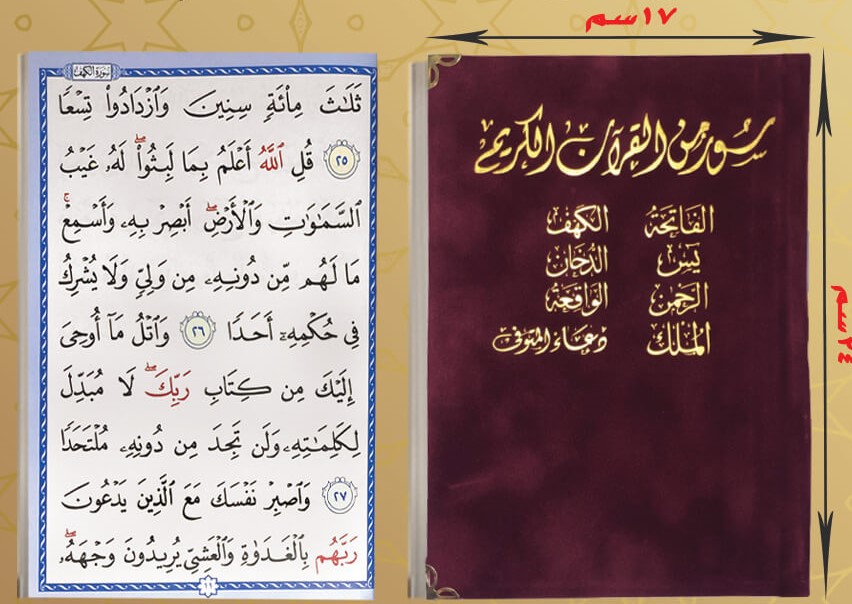 ١٧سم
سورة الكهف
ثَلَٰثَ مِاْئَةٍ سِنِينَ وَٱزْدَادُوا۟ تِسْعًا
٢٥ قُلِ ٱللَّهُ أَعْلَمُ بِمَا لَبِثُوا۟ۖ لَهُۥ غَيْبُ
ٱلسَّمَٰوَٰتِ وَٱلْأَرْضِۖ أَبْصِرْ بِهِۦ وَأَسْمِعْۚ
مَا لَهُم مِّن دُونِهِۦ مِن وَلِيٍّ وَلَا يُشْرِكُ
فِى حُكْمِهِۦٓ أَحَدًا ٢٦ وَٱتْلُ مَآ أُوحِىَ
إِلَيْكَ مِن كِتَابِ رَبِّكَۖ لَا مُبَدِّلَ
لِكَلِمَٰتِهِۦ وَلَن تَجِدَ مِن دُونِهِۦ مُلْتَحَدًا
٢٧ وَٱصْبِرْ نَفْسَكَ مَعَ ٱلَّذِينَ يَدْعُونَ
رَبَّهُم بِٱلْغَدَوٰةِ وَٱلْعَشِىِّ يُرِيدُونَ وَجْهَهُۥۖ
سور من القرآن الكريم
الفَاتِحَةُ الكَهف
يَس الدُّخَان
الرَّحمٰن الوَاقِعَة
المُلك دعَاء المتوفى
٢٤سم